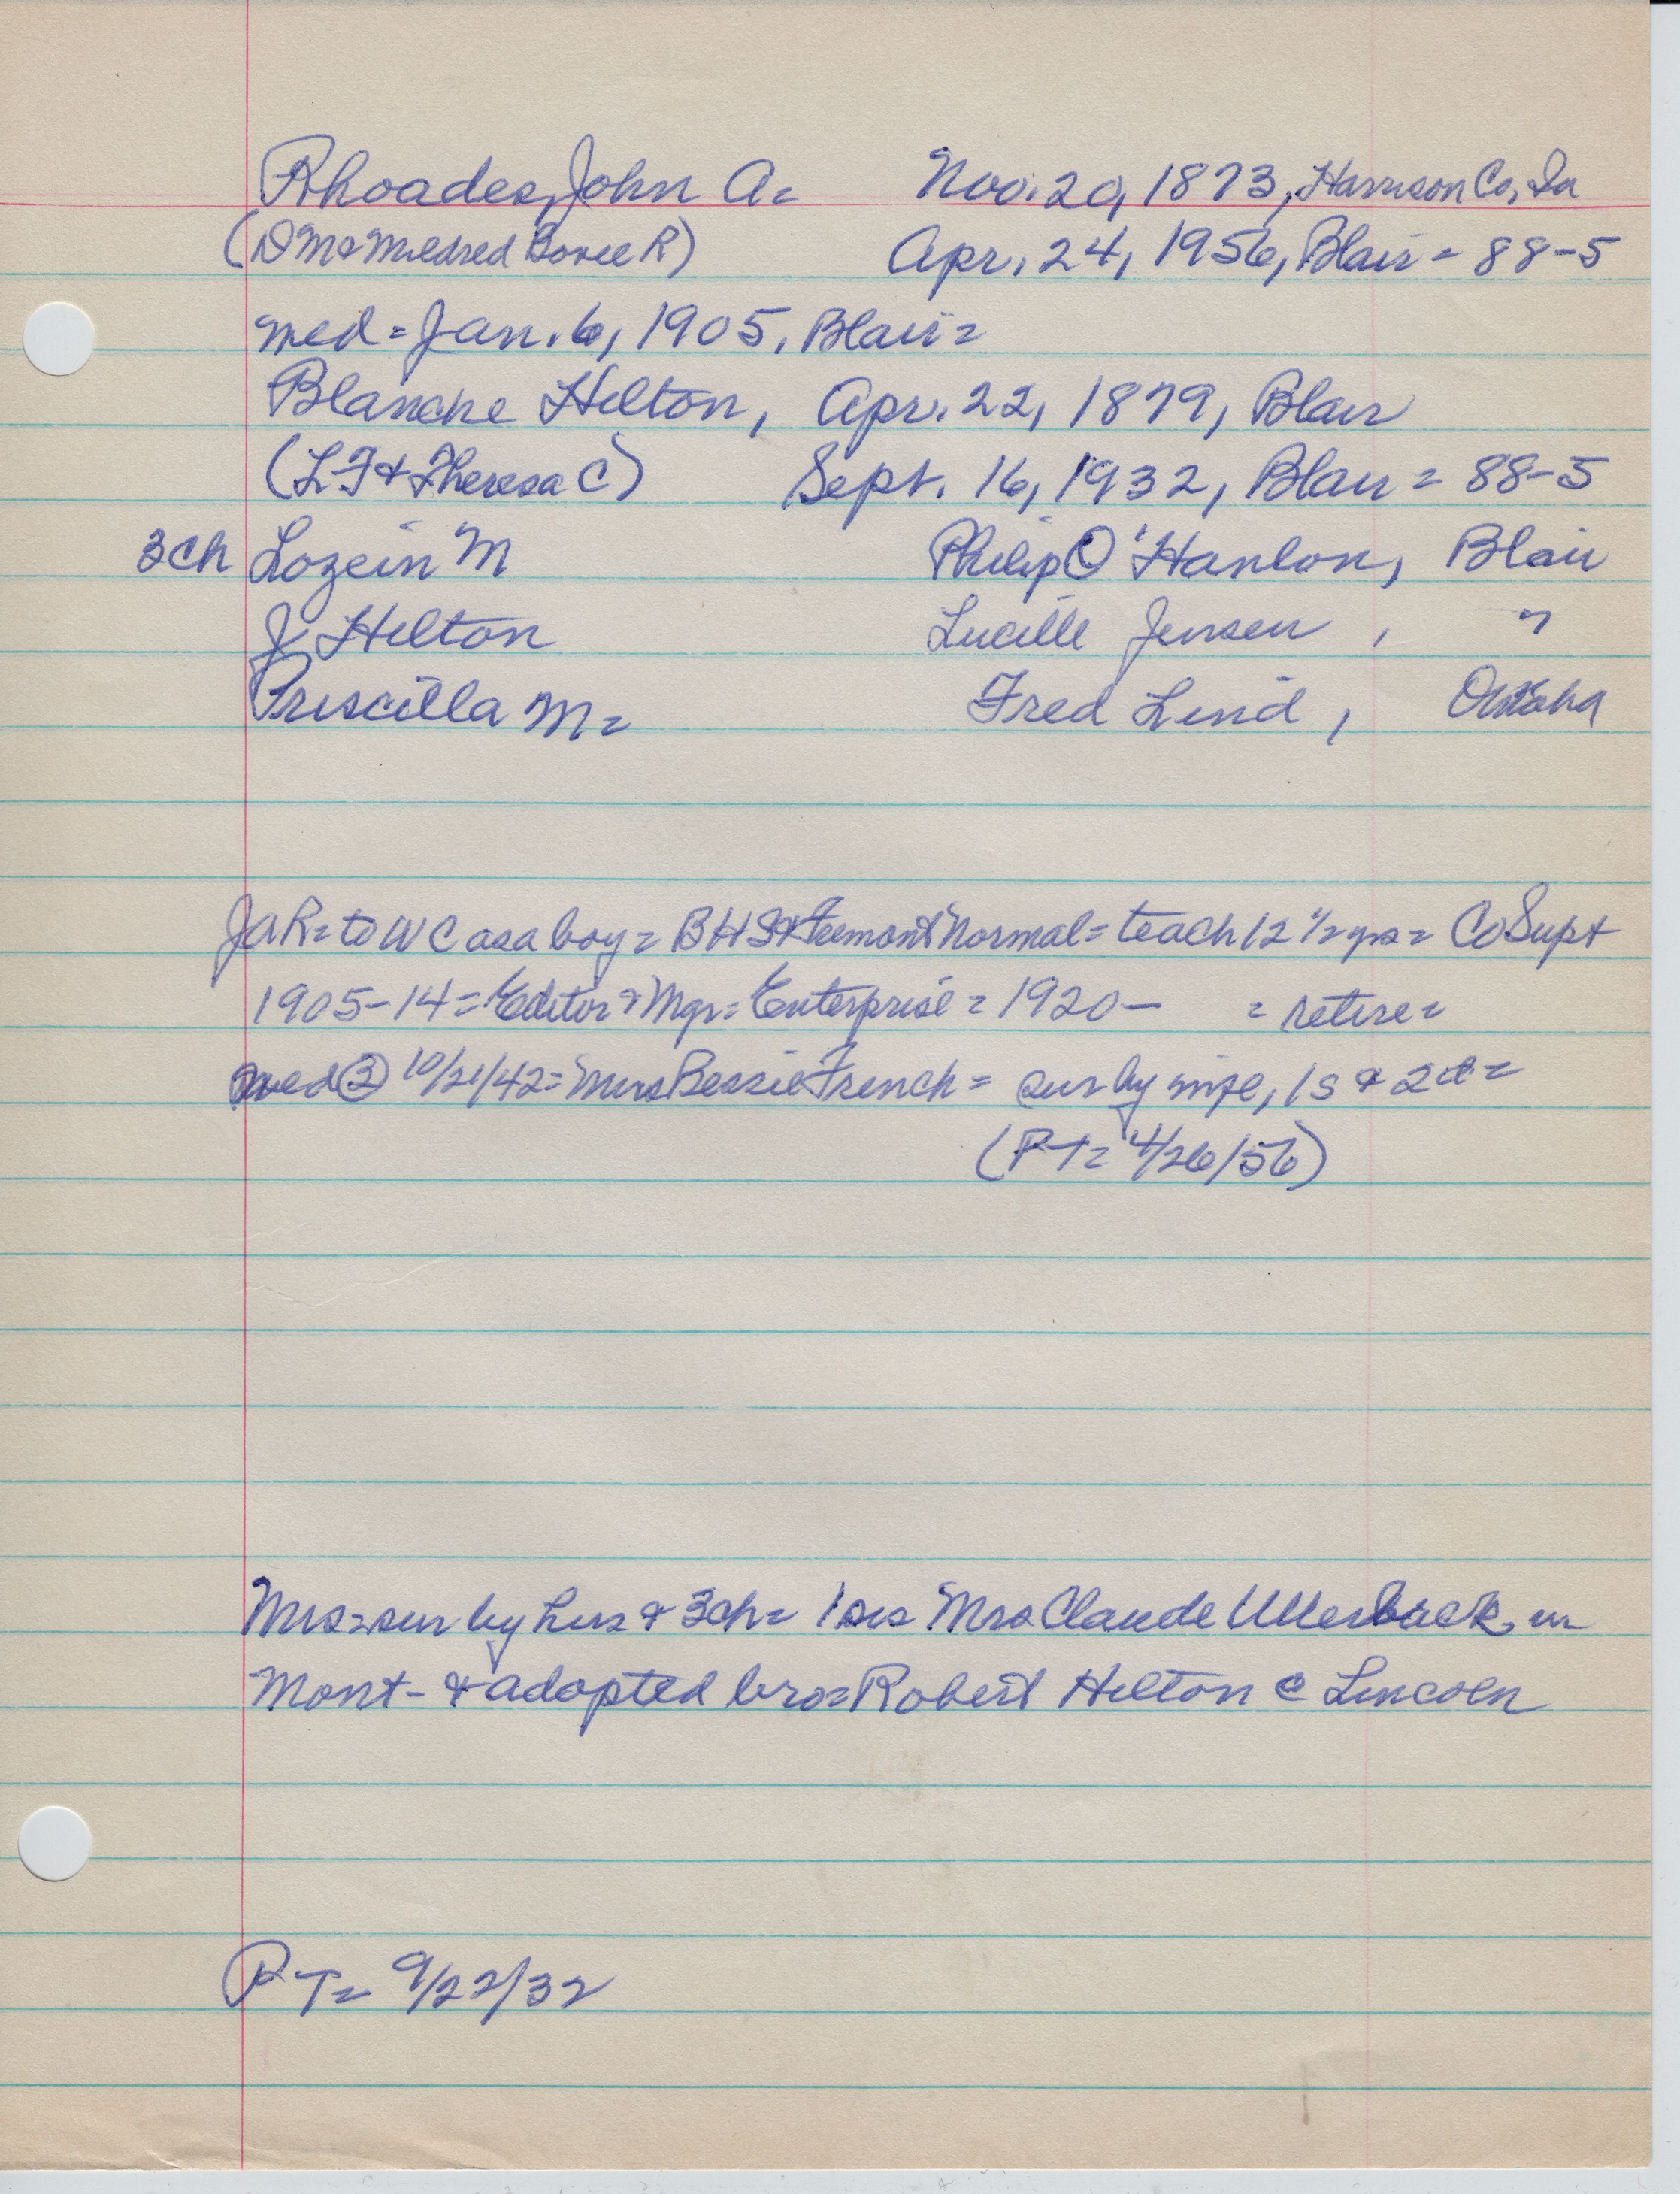 Rhoades, John A= Nov. 20, 1873, Harrison Co, Ia
(D M & Mildred Bovee R) Apr. 24, 1956, Blair = 88-5
med = Jan. 6, 1905, Blair =
Blanche Hilton, Apr. 22, 1879, Blair
(L F & Theresa C) Sept. 16, 1932, Blair = 88-5
3 ch Lozein M Philip O'Hanlon, Blair
J Hilton Lucille Jensen , "
Priscilla M= Fred Lind , Omaha
JAR = to W C as a boy = B H S & Fremont Normal = teach 12 1/2 yrs = Co Supt
1905-14 = Editor & Mgr = Enterprise = 1920 - = retire =
med ② 10/21/42 = Mrs Bessie French = sur by wife, 1 s & 2 d =
(P T = 4/26/56)
Mrs = sur by hus & 3 ch = 1 sis Mrs Claude Utterback in
Mont - & adopted bro = Robert Hilton @ Lincoln
P T = 9/22/32